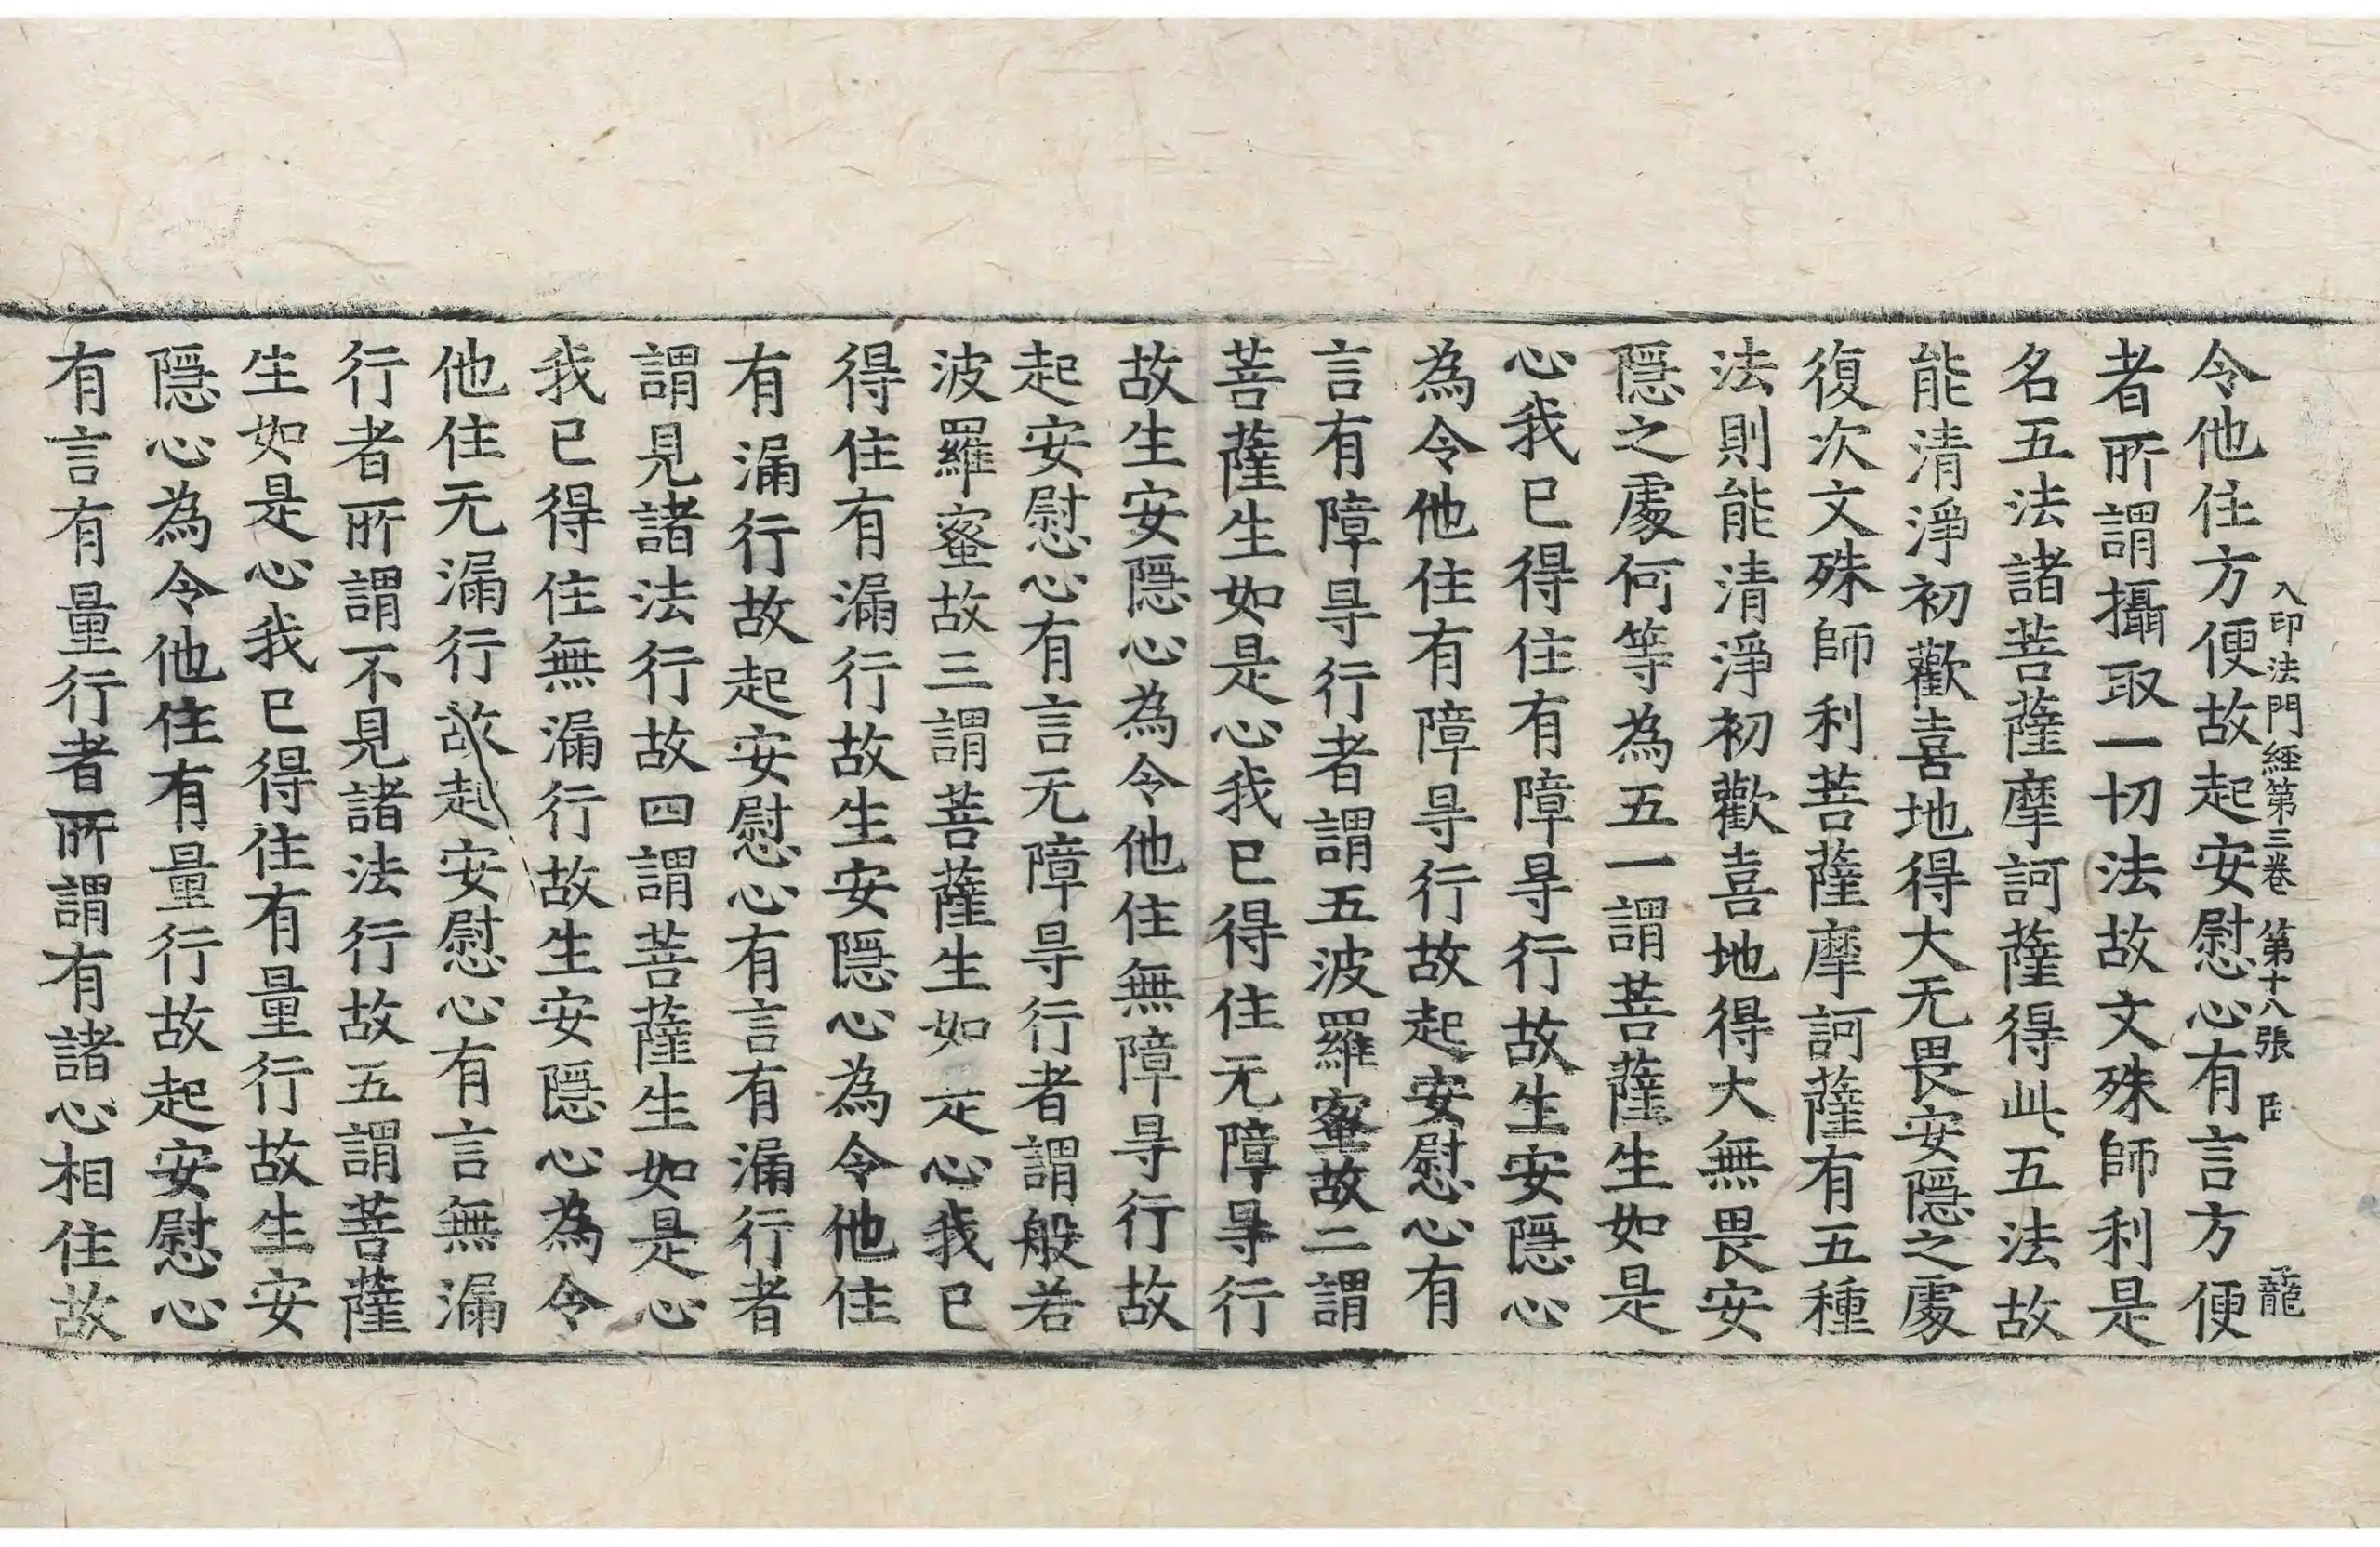 入印法門経第三卷 第十八張 龍
令他住方便故起安慰心有言方便
者所謂攝取一切法故文殊師利是
名五法諸菩薩摩訶薩得此五法故
能清淨初歡喜地得大无畏安隱之處
復次文殊師利菩薩摩訶薩有五種
法則能清淨初歡喜地得大無畏安
隱之處何等為五一謂菩薩生如是
心我已得住有障㝵行故生安隱心
為令他住有障㝵行故起安慰心有
言有障㝵行者謂五波羅蜜故二謂
菩薩生如是心我已得住无障㝵行
故生安隱心為令他住無障㝵行故
起安慰心有言无障㝵行者謂般若
波羅蜜故三謂菩薩生如是心我已
得住有漏行故生安隱心為令他住
有漏行故起安慰心有言有漏行者
謂見諸法行故四謂菩薩生如是心
我已得住無漏行故生安隱心為令
他住无漏行故起安慰心有言無漏
行者所謂不見諸法行故五謂菩薩
生如是心我已得住有量行故生安
隱心為令他住有量行故起安慰心
有言有量行者所謂有諸心相住故